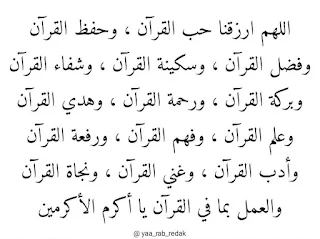 اللهم ارزقنا حب القرآن ، وحفظ القرآن
وفضل القرآن ، وسكينة القرآن ، وشفاء القرآن
وبركة القرآن ، ورحمة القرآن ، وهدي القرآن
وعلم القرآن ، وفهم القرآن ، ورفعة القرآن
وأدب القرآن ، وغني القرآن ، ونجاة القرآن
والعمل بما في القرآن يا أكرم الأكرمين
@ yaa_rab_redak